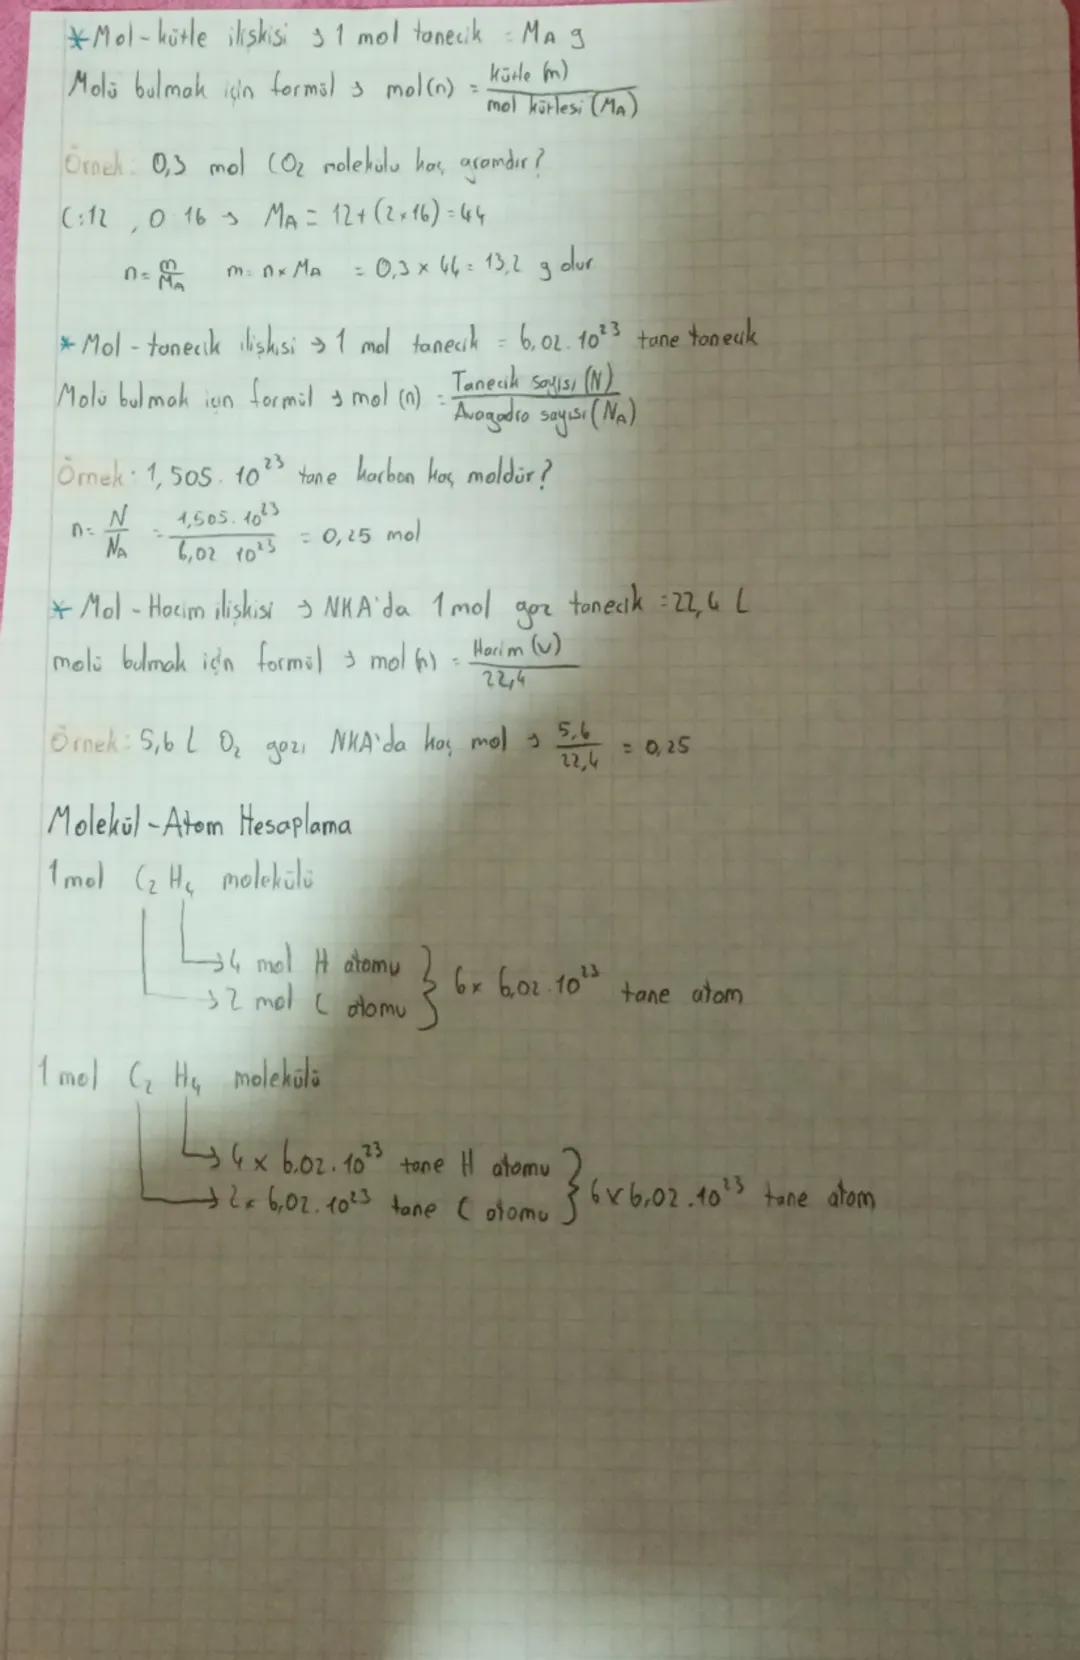 *Mol-kütle ilişkisi → 1 mol tanecik = MA g
Molü bulmak için formül → mol(n) = kütle (m) / mol kütlesi (MA)
Örnek: 0,3 mol CO2 molekülü kaç gramdır?
C:12, O 16 → MA = 12+(2×16)=44
n = m/MA m = n×MA = 0,3 × 44 = 13,2 g olur
* Mol - tanecik ilişkisi → 1 mol tanecik = 6,02.10²³ tane tanecik
Molü bulmak için formül → mol (n) = Tanecik sayısı (N) / Avogadro sayısı (NA)
Örnek: 1,505.10²³ tane karbon kaç moldür?
n = N/NA = 1,505.10²³ / 6,02 10²³ = 0,25 mol
* Mol - Hacim ilişkisi → NKA'da 1 mol gaz tanecik = 22,4 L
molü bulmak için formül → mol (n) = Hacim (v) / 22,4
Örnek: 5,6 L O2 gazı NKA'da kaç mol → 5,6 / 22,4 = 0,25
Molekül-Atom Hesaplama
1 mol C2 H4 molekülü
→ 4 mol H atomu
→ 2 mol C atomu } 6 × 6,02.10²³ tane atom
1 mol C2 H4 molekülü
→ 4 × 6,02.10²³ tane H atomu
→ 2 × 6,02.10²³ tane C atomu } 6×6,02.10²³ tane atom